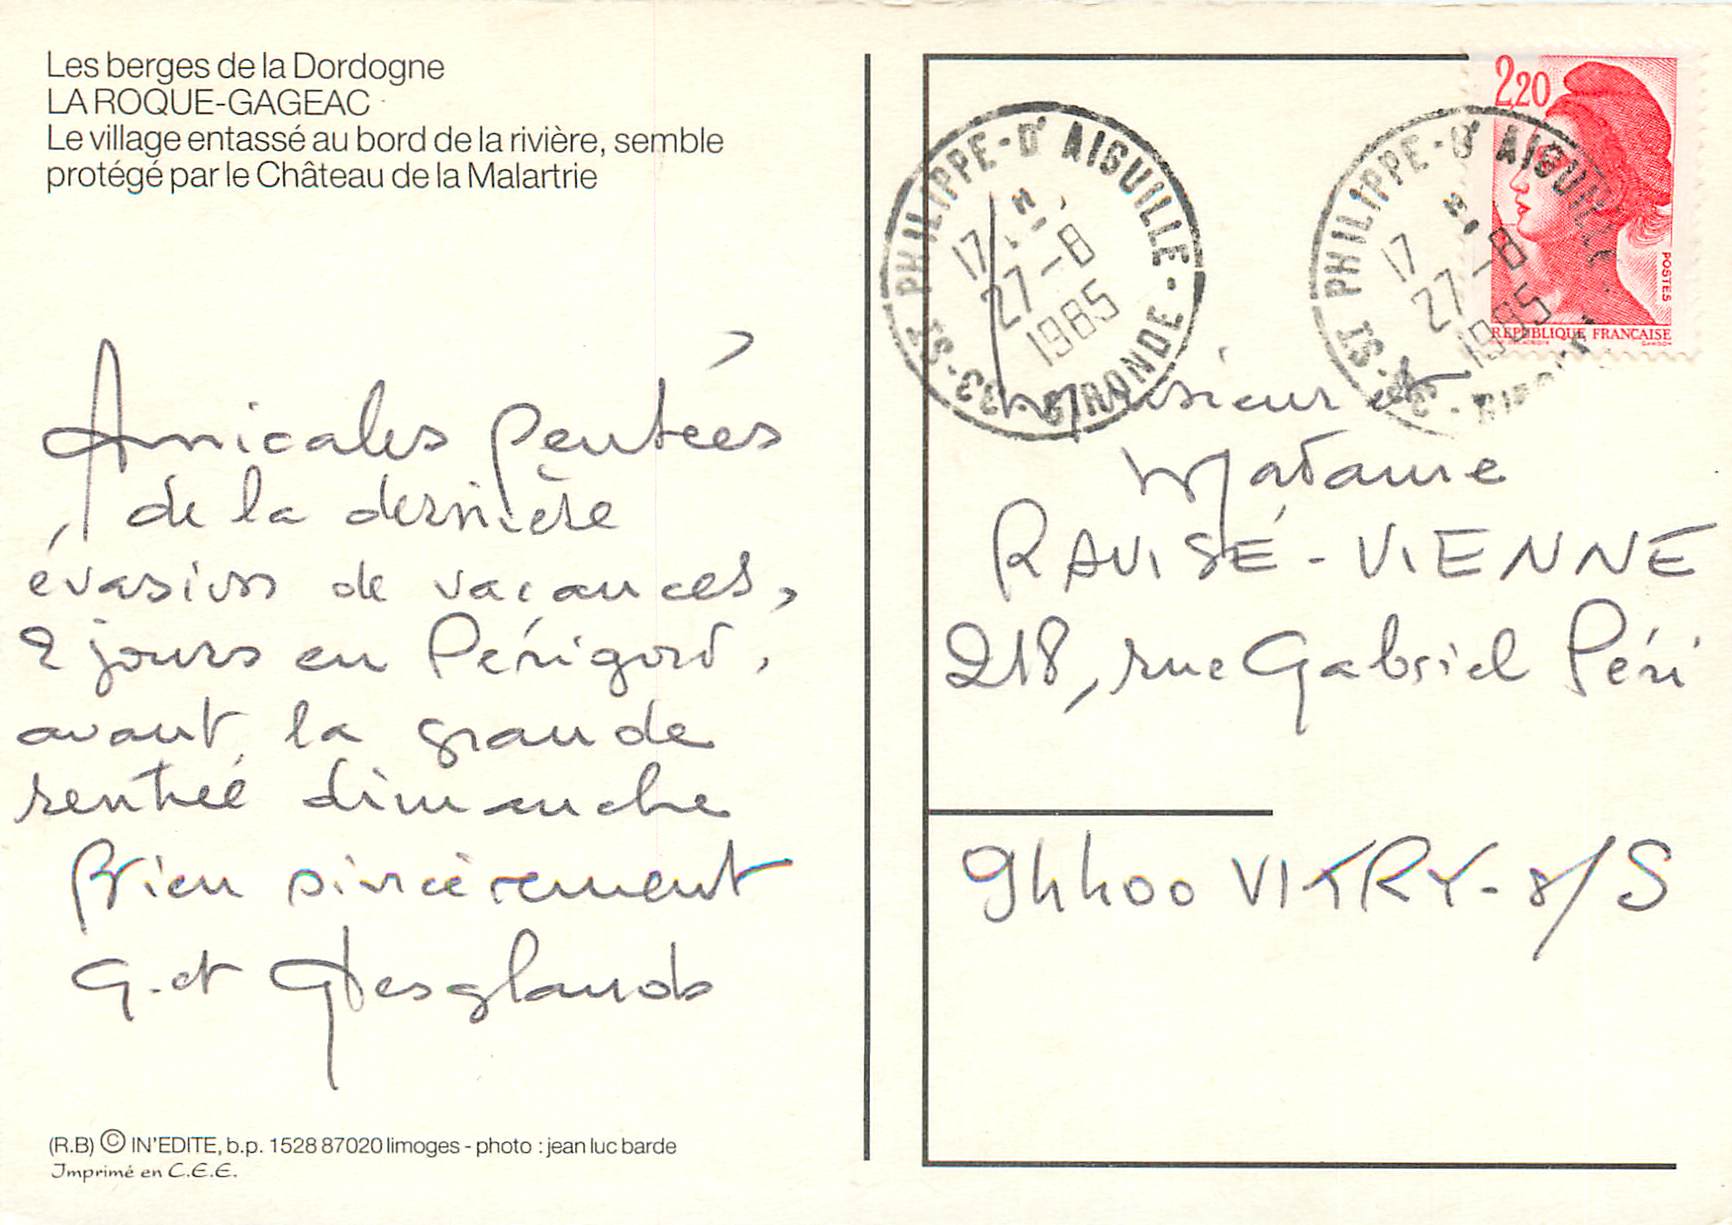 Les berges de la Dordogne
LA ROQUE-GAGEAC
Le village entassé au bord de la rivière, semble
protégé par le Château de la Malartrie
Amicales pensées
de la dernière
évasion de vacances,
2 jours en Périgord,
avant la grande
rentrée dimanche
Bien sincèrement
G. et Desglands
(R.B) © IN'EDITE, b.p. 1528 87020 limoges - photo : jean luc barde
Imprimé en C.E.E.
2,20
POSTES
REPUBLIQUE FRANCAISE
ST-PHILIPPE-D'AIGUILLE-
33 - GIRONDE
17
27-8
1985
ST-PHILIPPE-D'AIGUILLE
33 - GIRONDE
17
27-8
1985
Monsieur et
Madame
RAVISÉ-VIENNE
218, rue Gabriel Péri
94400 VITRY-s/S